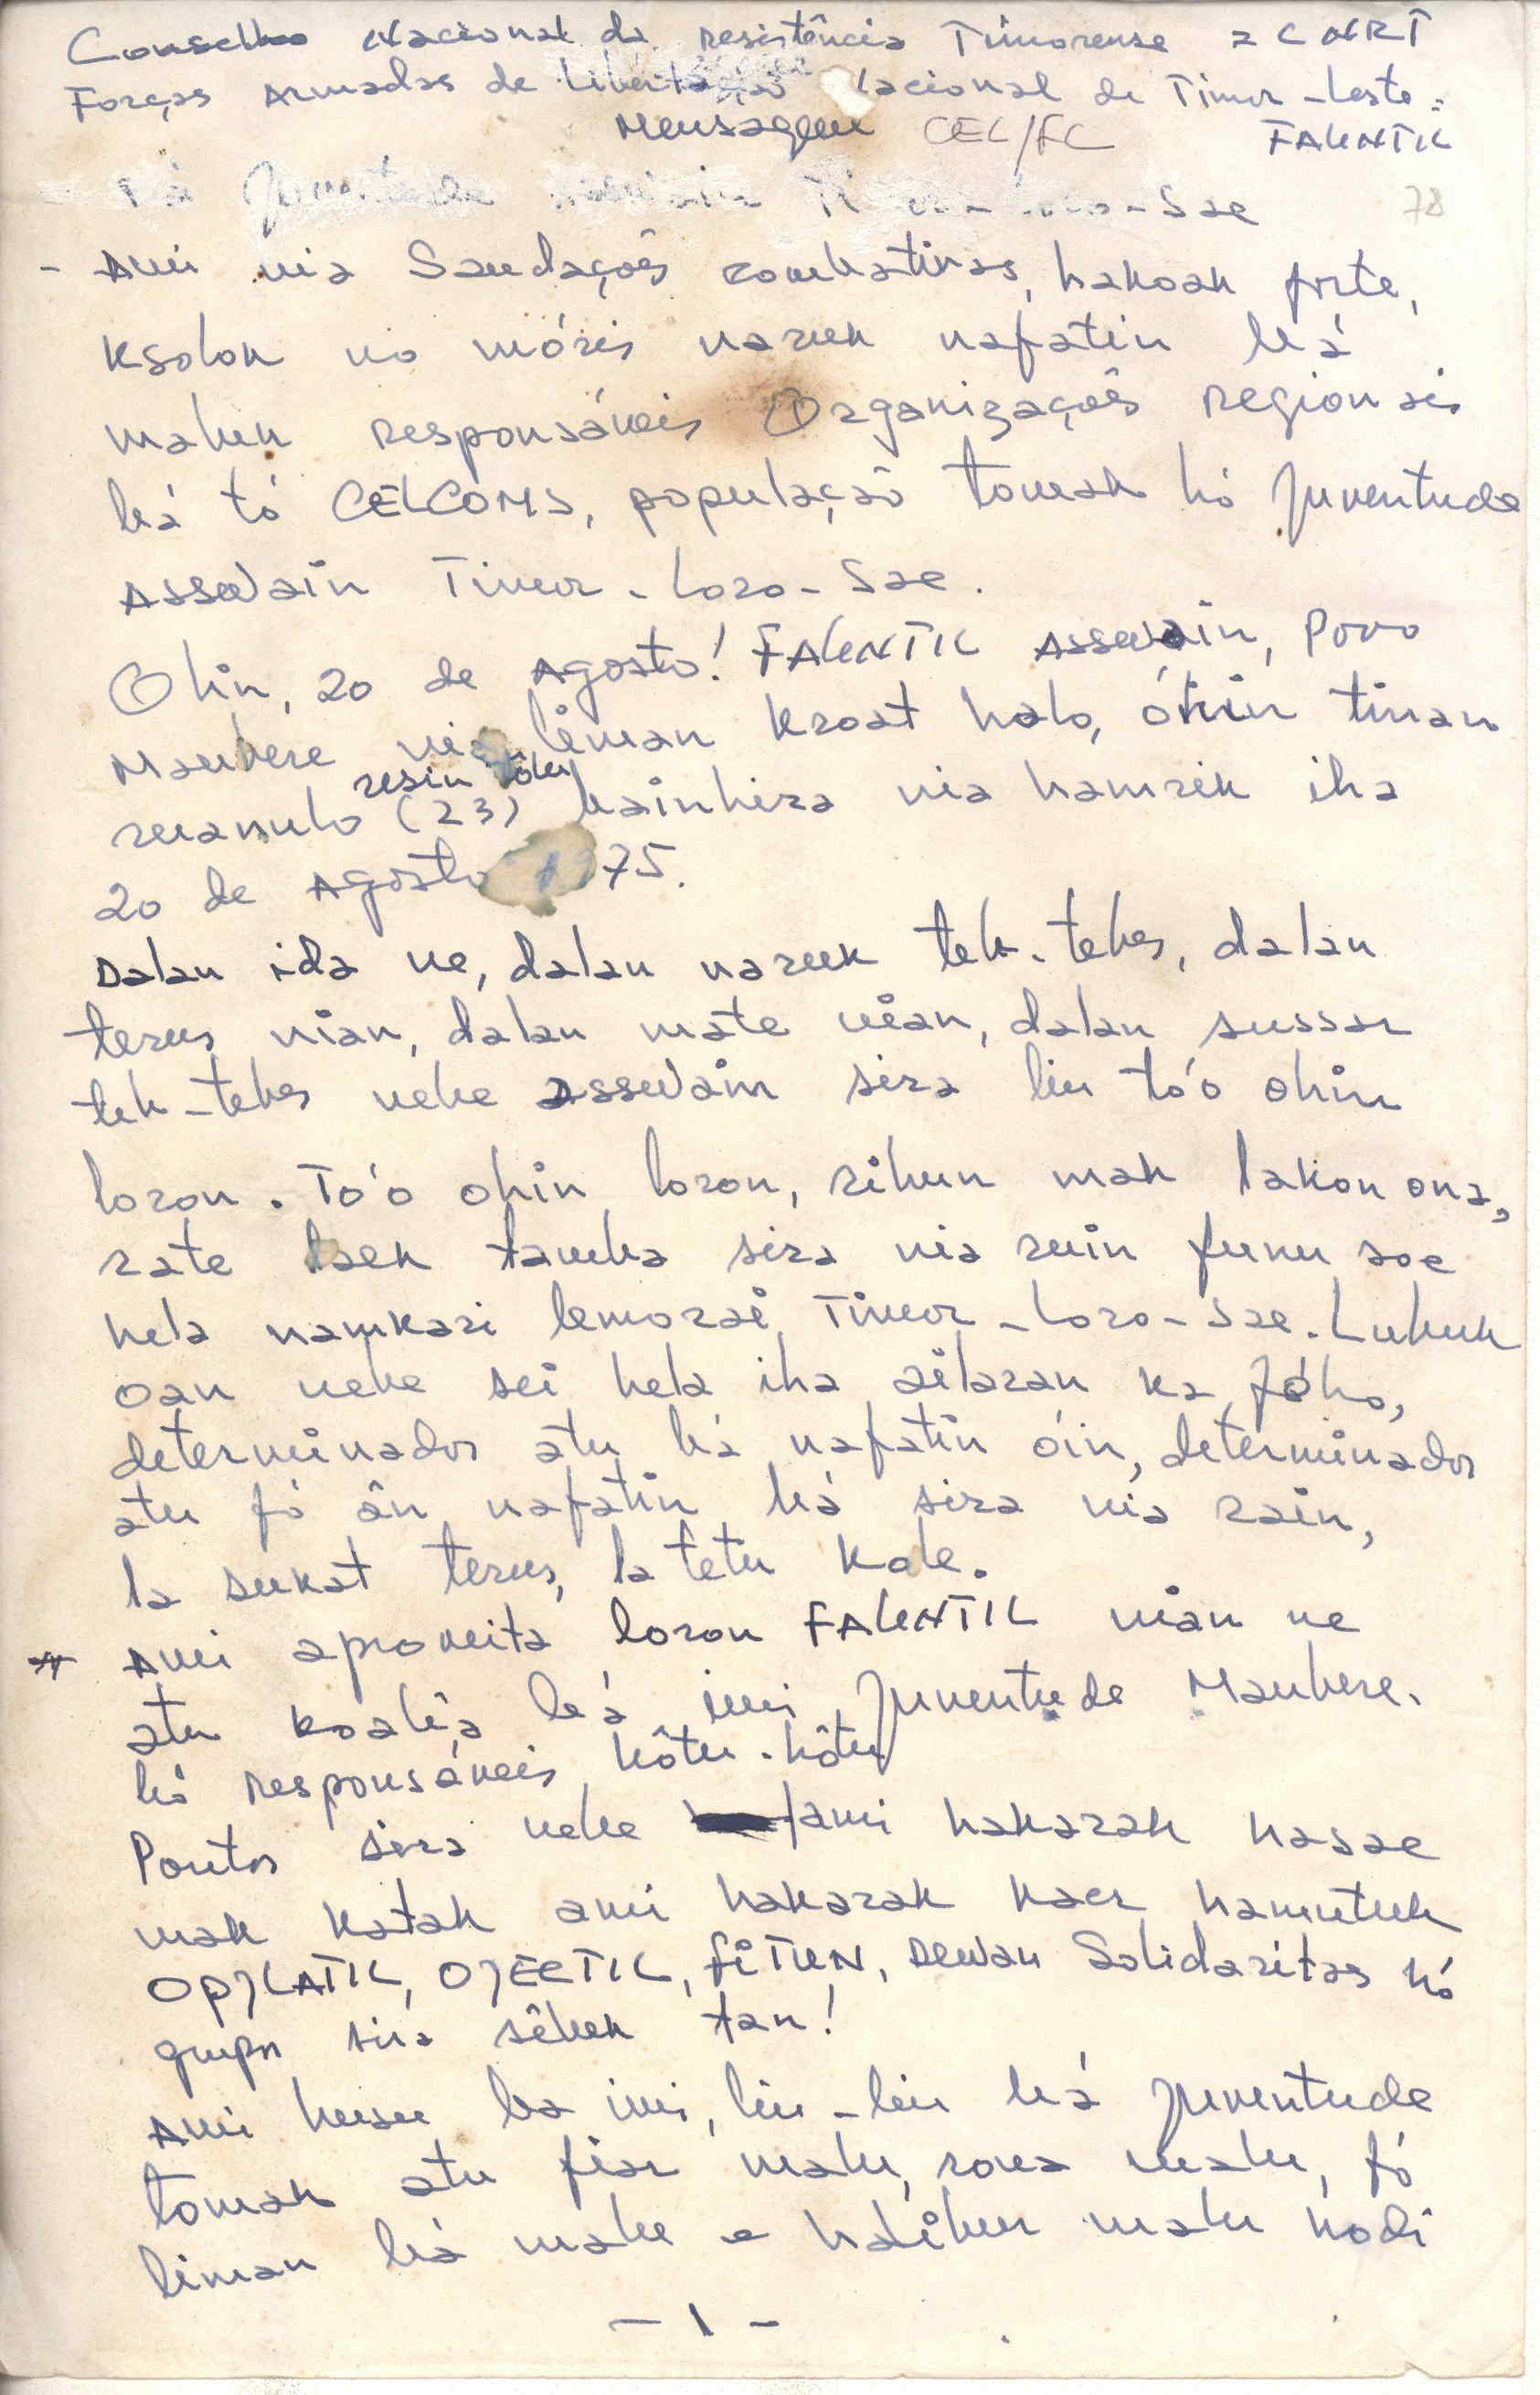 Conselho Nacional da resistência Timorense = CNRT
Forças Armadas de Libertação Nacional de Timor-Leste =
Mensagem CEL/FC FALINTIL
Bá Juventude Timor-Loro-Sae 78
- Ami nia Saudações combativas, hakoak forte,
ksolok no móris naruk nafatin bá
maluk responsáveis Organizações regionais
bá tó CELCOMs, população tomak hó Juventude
Asswain Timor-Loro-Sae.
Ohin, 20 de Agosto! FALINTIL Asswain, Povo
Maubere nia liman kroat halo, óhin tinan
resin tólu
ruanulo (23) bainhira nia hamrik iha
20 de Agosto 1975.
Dalan ida ne, dalan naruk teb-tebes, dalan
terus nian, dalan mate nian, dalan sussar
teb-tebes nebe asswain sira liu tó'o ohin
loron. Tó'o ohin loron, rihun mak lakon ona,
rate laek tamba sira nia ruin funu soe
hela namkari lemorai Timor-Loro-Sae. Lubuk
oan nebe sei hela iha ailaran ka fóho,
determinados atu bá nafatin óin, determinados
atu fó án nafatin bá sira nia rain,
la sukat terus, la tetu kole.
* Ami aproveita loron FALINTIL nian ne
atu koalia bá imi Juventude Maubere.
hó responsáveis hôtu-hôtu
Pontos sira nebe ami hakarak hasae
mak katak ami hakarak kaer hamutuk
OPJLATIL, OJECTIL, FITUN, Dewan Solidaritas hó
grupo sira sêluk tan!
Ami husu ba imi, liu-liu bá Juventude
tomak atu fiar malu, rona malu, fó
liman bá malu e haléhu malu hodi
- 1 -